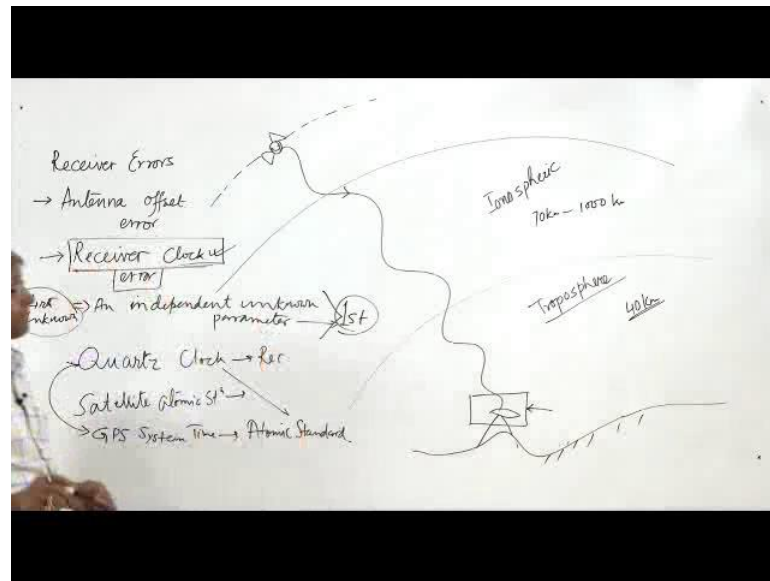 Receiver Errors
→ Antenna offset
error
→ Receiver Clock
error
⇒ An independent unknown
parameter → 1st
Quartz Clock → Rec
Satellite atomic Sts →
→ GPS System Time → Atomic Standard.
Ionospheric
70km - 1000 km
Troposphere
40km